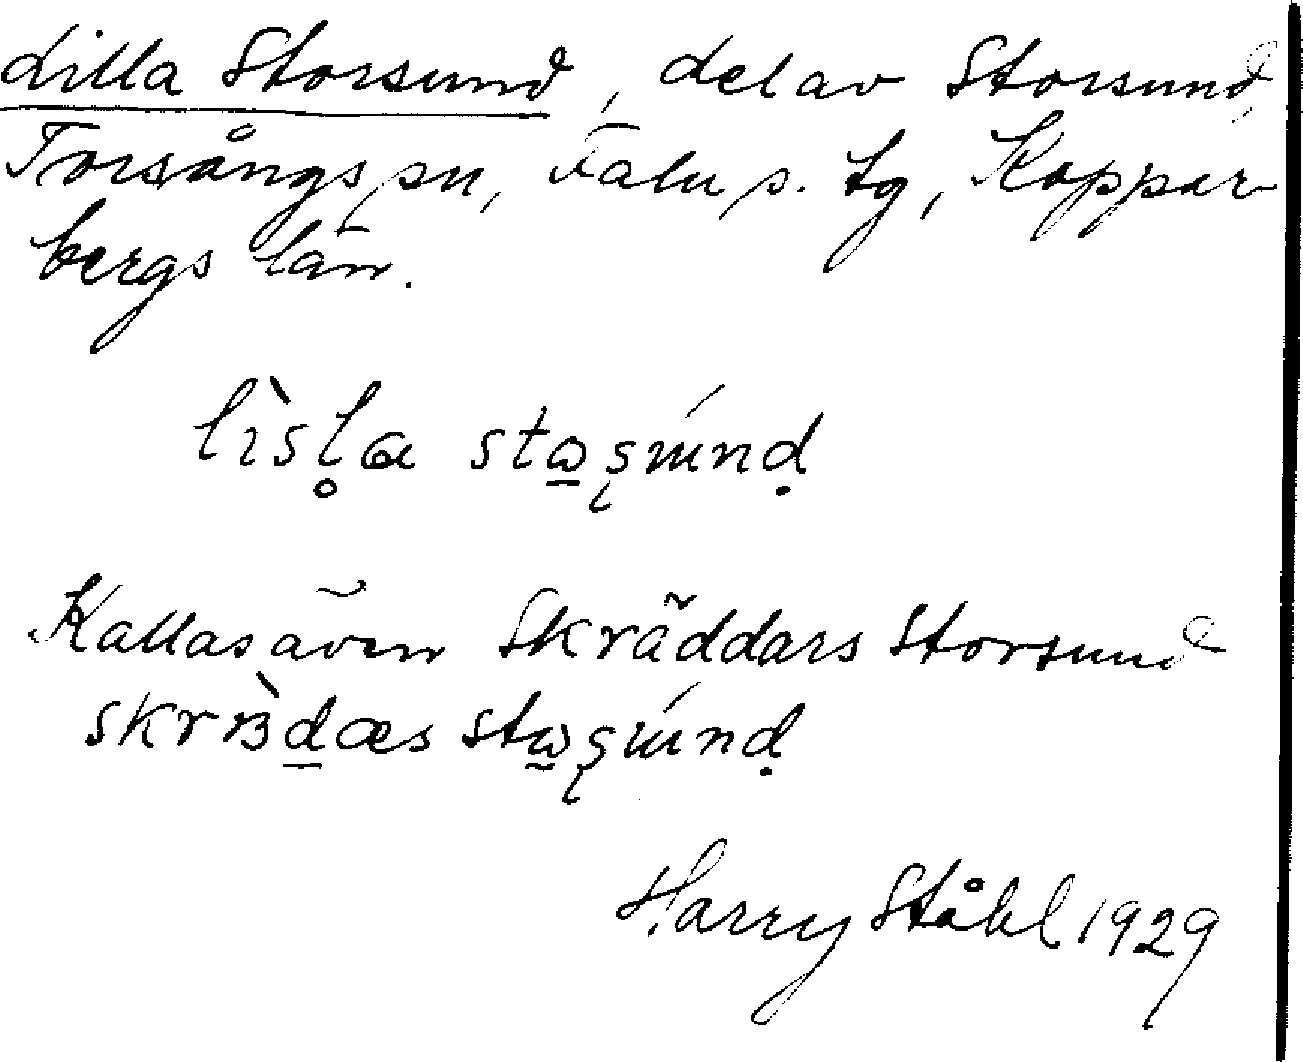 Lilla Storsund, del av Storsund,
Torsångs sn, Falu s. tg, Koppar-
bergs län.
lìsl̥a stω̱ʂúnḍ
Kallas även Skräddars Storsund
skrὰḏæs stω̱ʂúnḍ
Harry Ståhl 1929